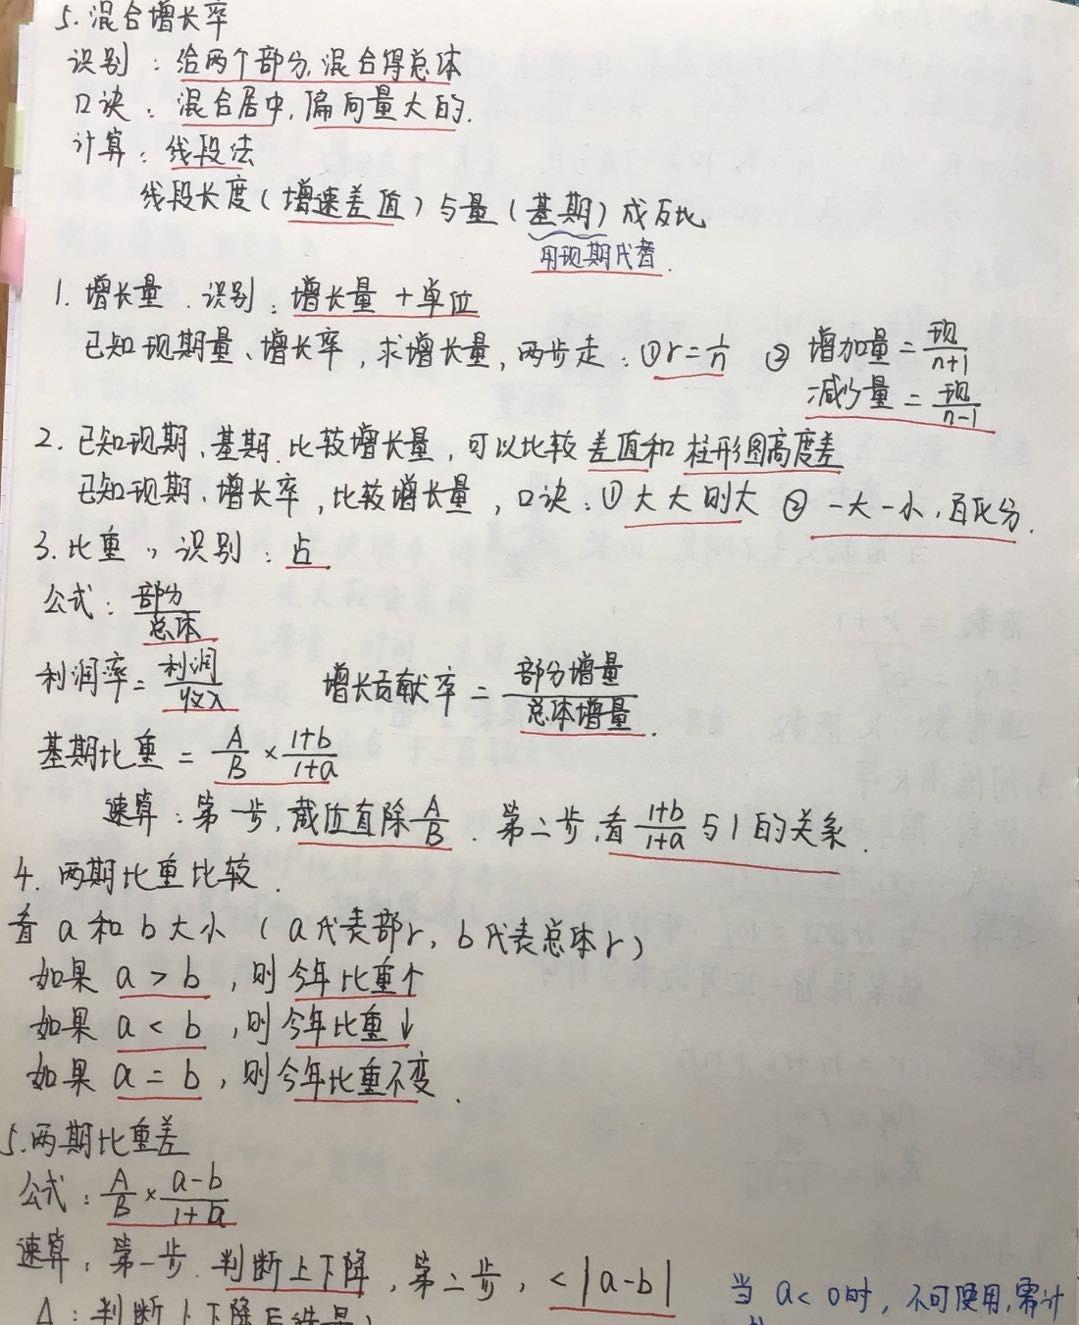 5. 混合增长率
识别：给两个部分,混合得总体
口诀：混合居中,偏向量大的.
计算：线段法
线段长度(增速差值)与量(基期)成反比
用现期代替.
1. 增长量.识别：增长量+单位
已知现期量、增长率,求增长量,两步走：①r=1/n ② 增加量=现/n+1
减少量=现/n-1
2. 已知现期、基期.比较增长量,可以比较差值和柱形图高度差
已知现期、增长率,比较增长量,口诀：①大大则大 ②一大一小,百化分.
3. 比重,识别：占
公式：部分/总体
利润率=利润/收入 增长贡献率=部分增量/总体增量.
基期比重=A/B×1+b/1+a
速算：第一步,截位直除A/B.第二步,看1+b/1+a与1的关系.
4. 两期比重比较.
看a和b大小(a代表部r,b代表总体r)
如果a>b,则今年比重↑
如果a<b,则今年比重↓
如果a=b,则今年比重不变.
5.两期比重差
公式：A/B×a-b/1+a
速算：第一步.判断上下降,第二步,<|a-b|
当a<0时,不可使用,需计